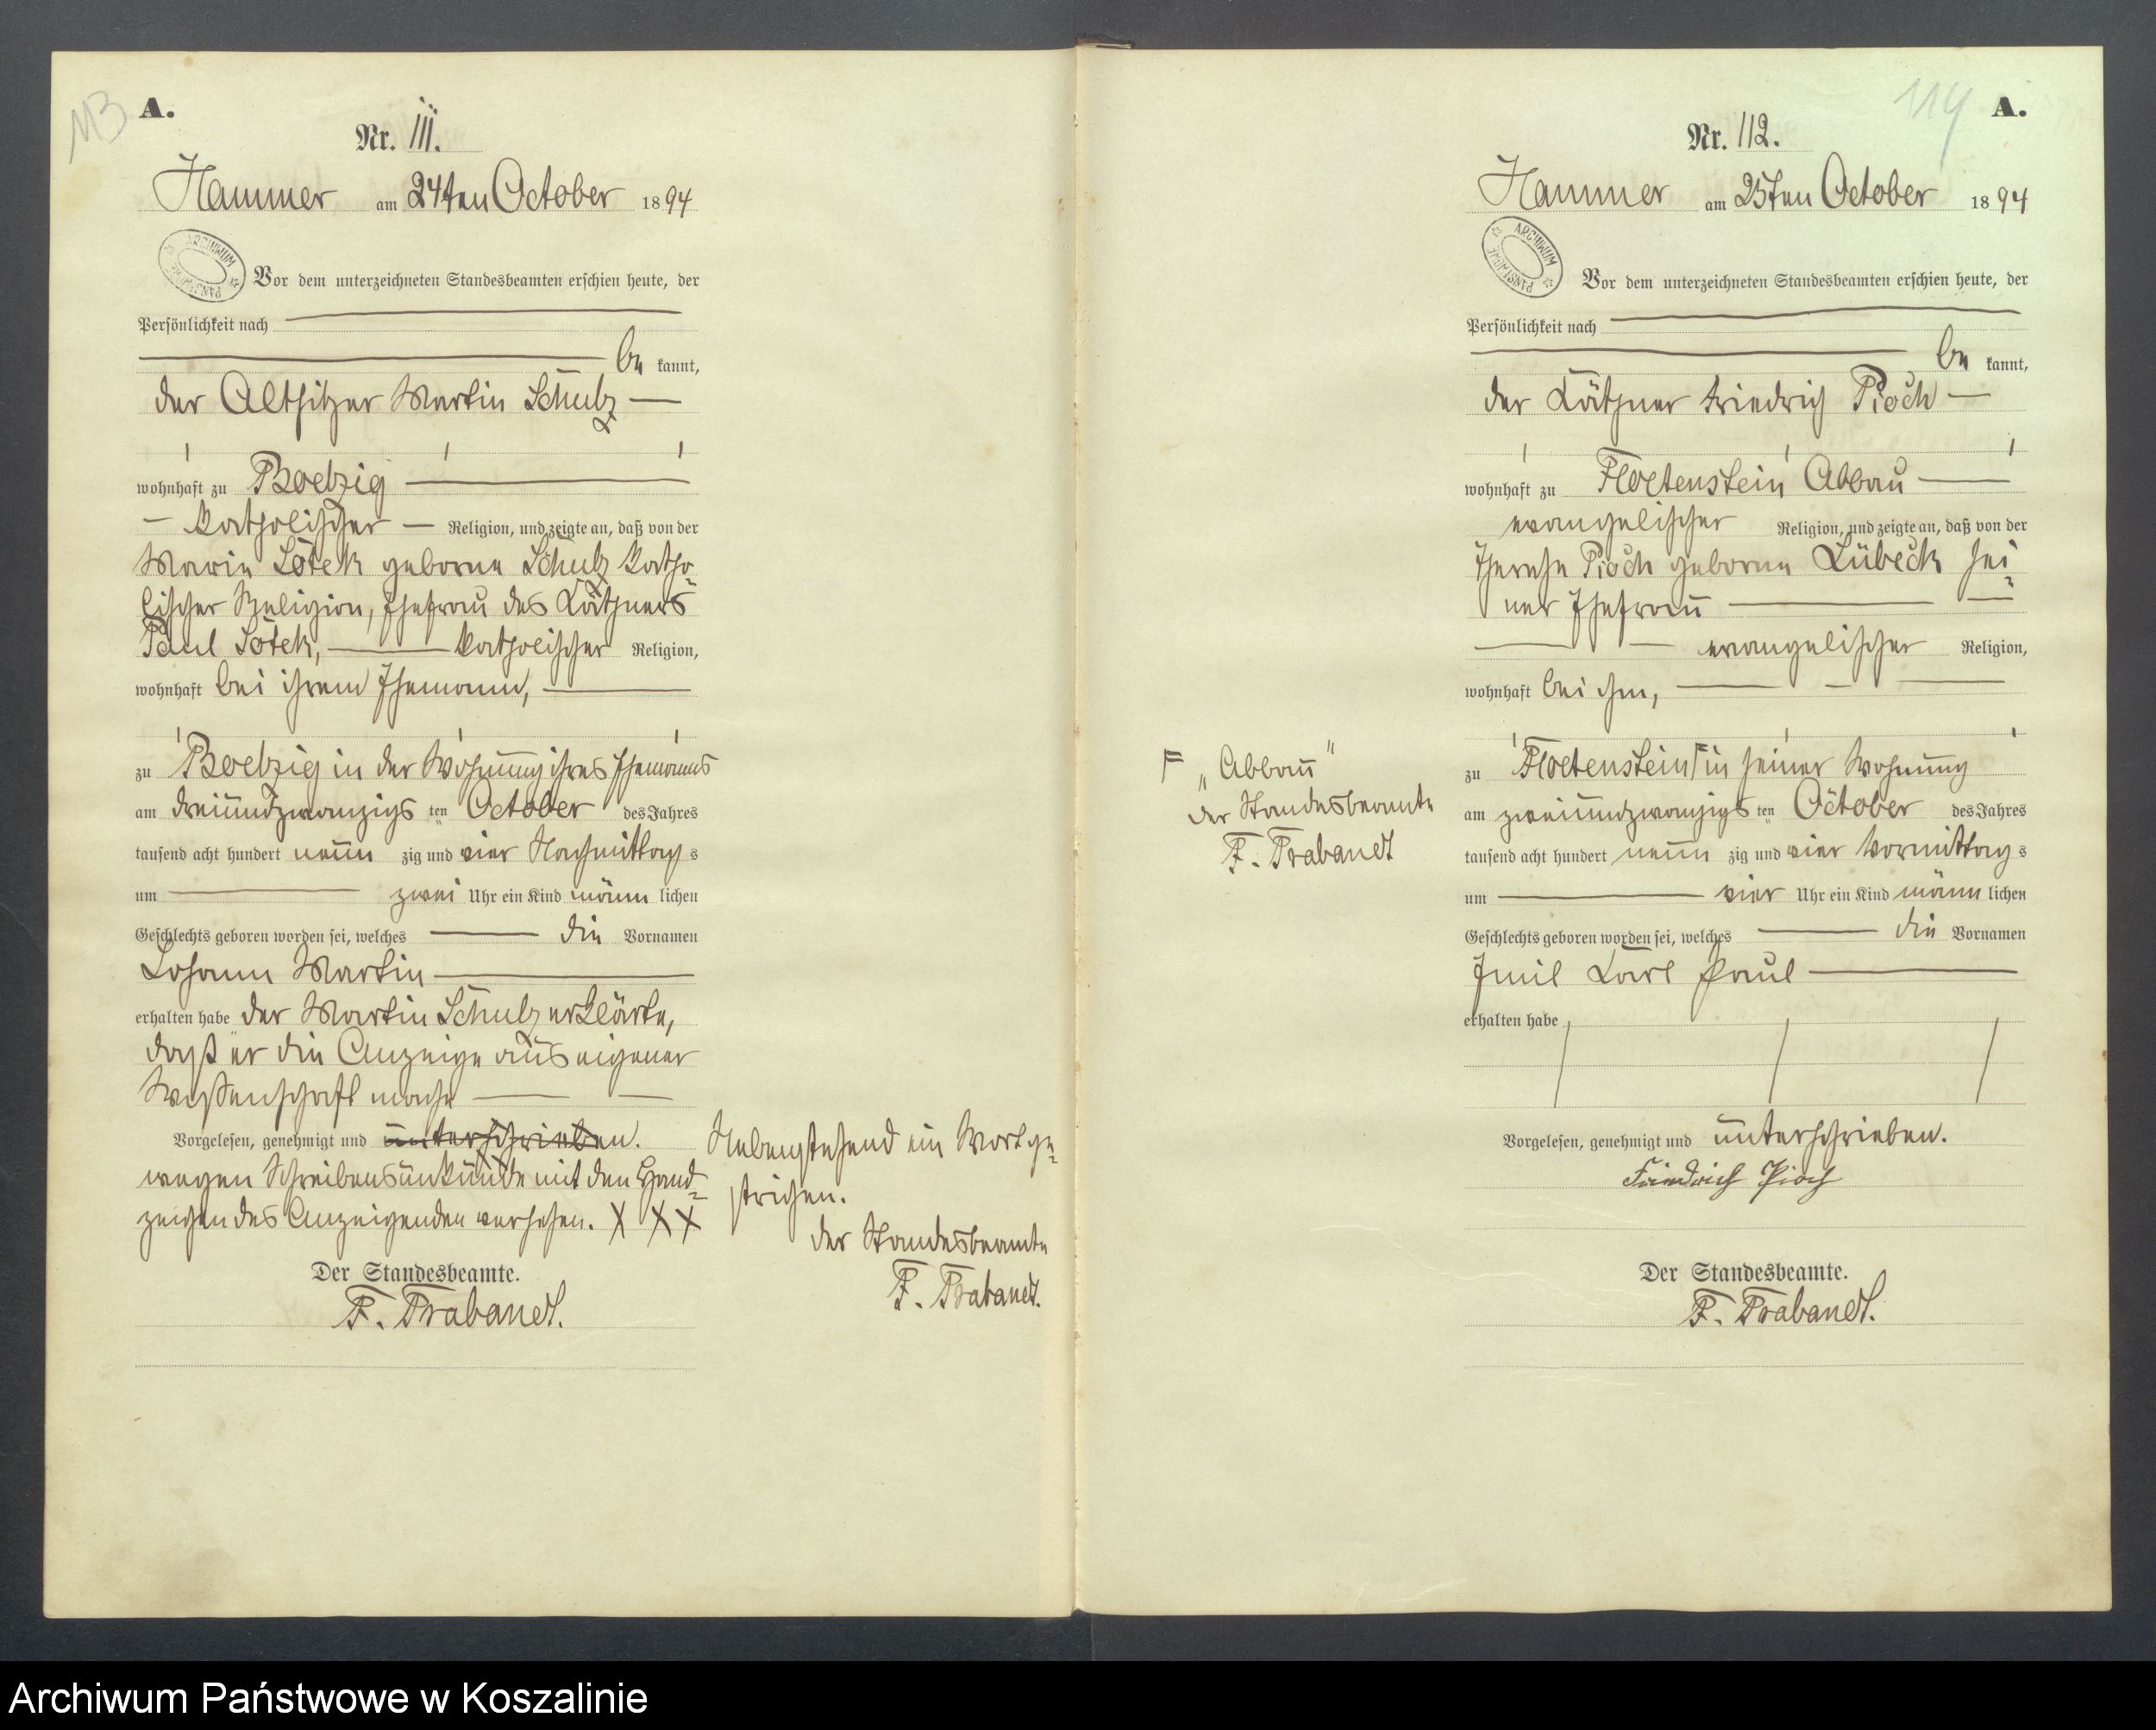 113
A.
Nr. 111.
Hammer am 24ten October 1894
ARCHIWUM PAŃSTWOWE
Vor dem unterzeichneten Standesbeamten erschien heute, der
Persönlichkeit nach
be kannt,
der Altsitzer Martin Schulz
wohnhaft zu Boelzig
katholischer Religion, und zeigte an, daß von der
Marie geborne Schulz katho-
lischer Religion, Ehefrau des Käthners
Paul katholischer Religion,
wohnhaft bei ihrem Ehemann,
zu Boelzig in der Wohnung ihres Ehemanns
am dreiundzwanzigs ten October des Jahres
tausend acht hundert neun zig und vier Nachmittag s
um zwei Uhr ein Kind männ lichen
Geschlechts geboren worden sei, welches die Vornamen
Johann Martin
erhalten habe der Martin Schulz erklärte,
daß er die Anzeige aus eigener
Wissenschaft mache
Vorgelesen, genehmigt und unterschrieben.
wegen Schreibensunkunde mit den Hand-
zeichen des Anzeigenden versehen. X X X
Der Standesbeamte.
F. Trabandt.
Nebenstehend ein Wort ge-
strichen.
der Standesbeamte
F. Trabandt.
114
A.
Nr. 112.
Hammer am 25ten October 1894
ARCHIWUM PAŃSTWOWE
Vor dem unterzeichneten Standesbeamten erschien heute, der
Persönlichkeit nach
be kannt,
der Käthner Friedrich Pioch
wohnhaft zu Floetenstein Abbau
evangelischer Religion, und zeigte an, daß von der
Therese Pioch geborne Lübeck sei-
ner Ehefrau
evangelischer Religion,
wohnhaft bei ihm,
zu Floetenstein F in seiner Wohnung
am zweiundzwanzigs ten October des Jahres
tausend acht hundert neun zig und vier Vormittag s
um vier Uhr ein Kind männ lichen
Geschlechts geboren worden sei, welches die Vornamen
Emil Karl Paul
erhalten habe
Vorgelesen, genehmigt und unterschrieben.
Friedrich Pioch
Der Standesbeamte.
F. Trabandt.
F „Abbau"
der Standesbeamte
F. Trabandt
Archiwum Państwowe w Koszalinie